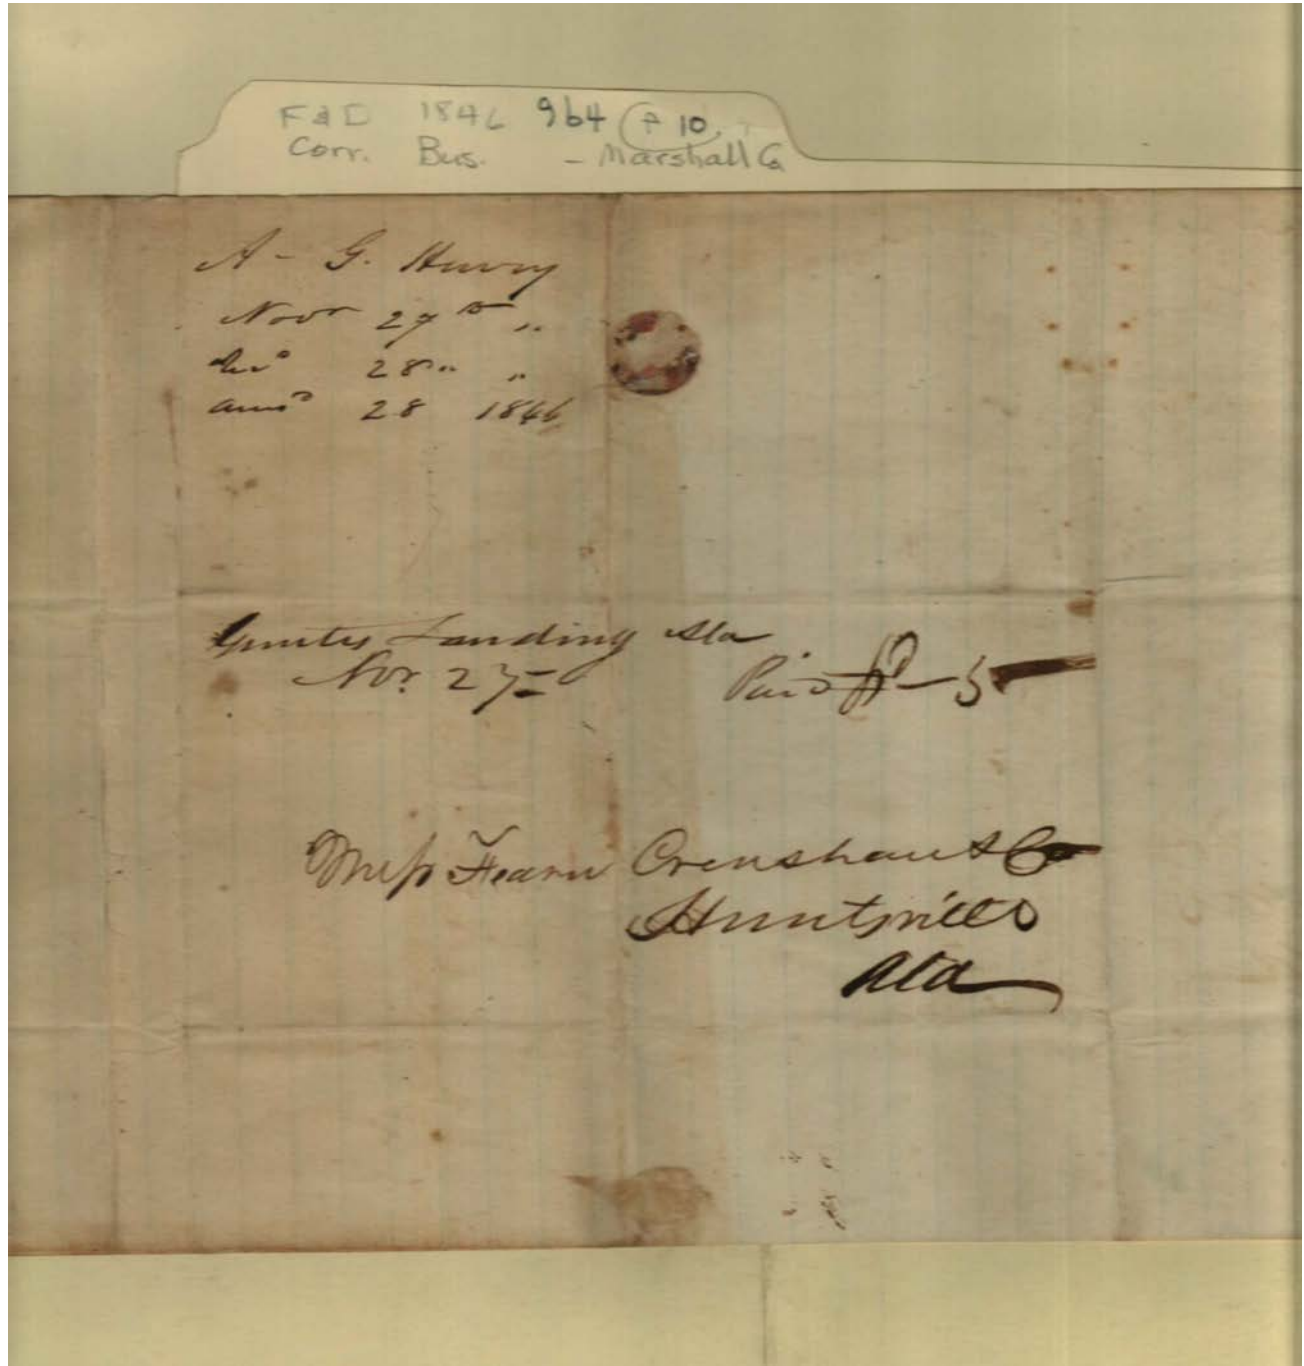 F & D 1846 964 P 10
Corr. Bus. - Marshall Co
A - G. Henry
Novr 27th "
Recd 28 " "
Ansd 28 1846
Gunters Landing Ala
Nov. 27
Paid 5
Mess Fearn Crenshaw & Co
Huntsville
Ala